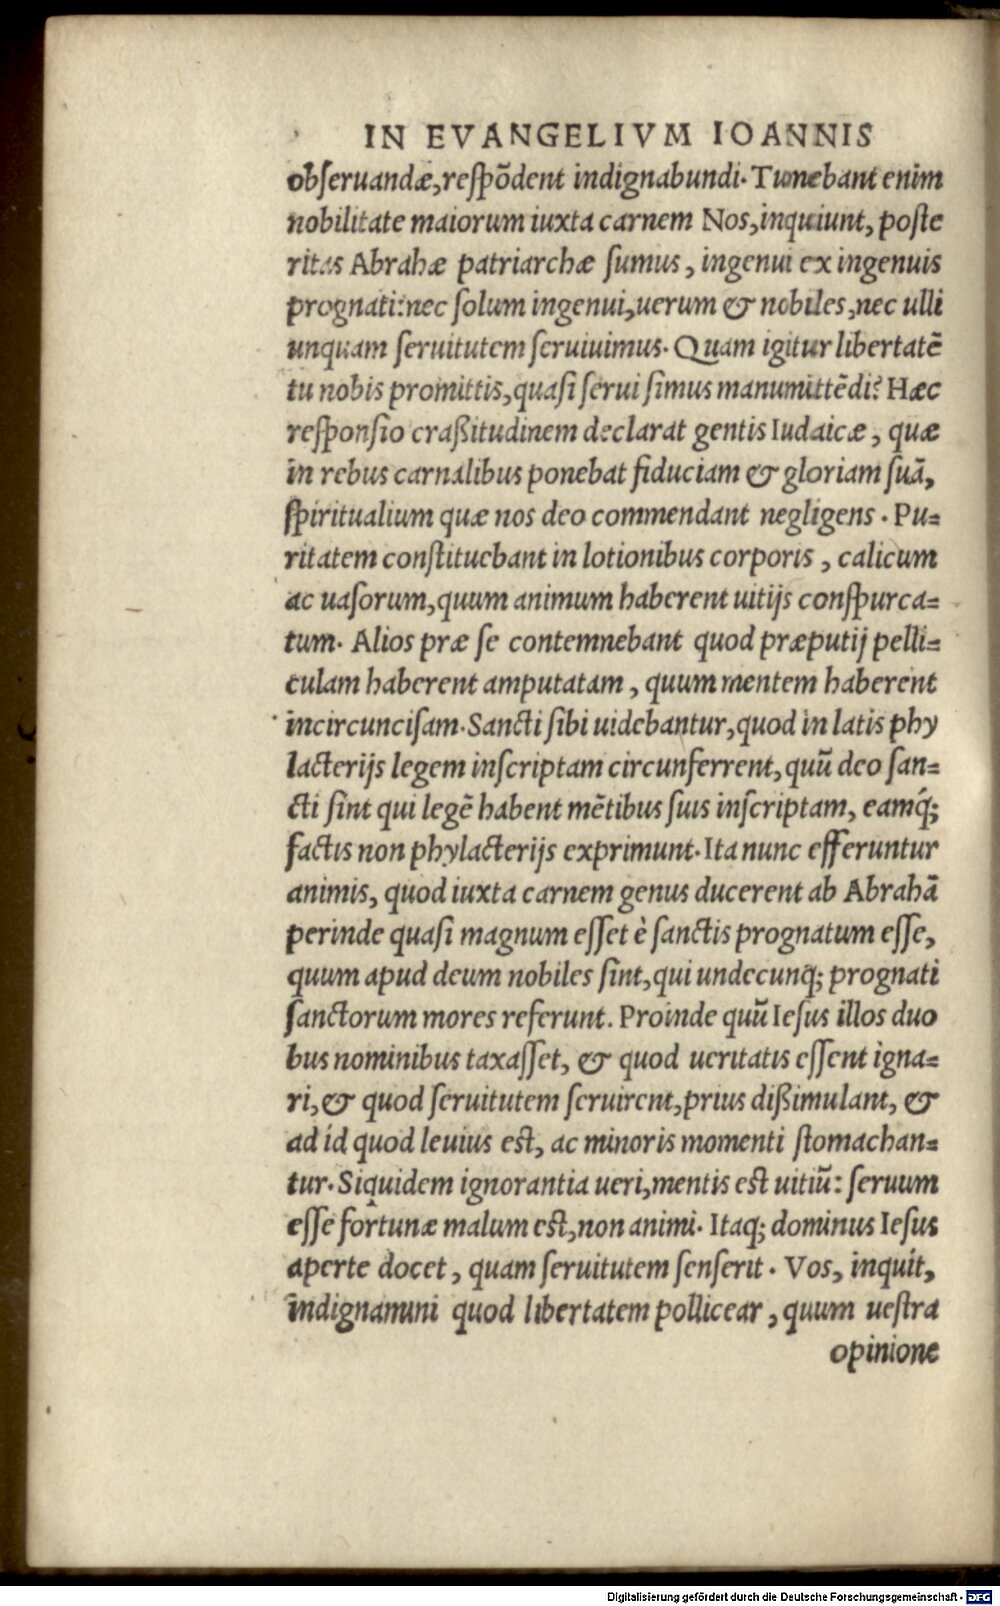 IN EVANGELIVM IOANNIS
obſeruandæ, reſpōdent indignabundi. Tumebant enim
nobilitate maiorum iuxta carnem Nos, inquiunt, poſte
ritas Abrahæ patriarchæ ſumus, ingenui ex ingenuis
prognati: nec ſolum ingenui, uerum & nobiles, nec ulli
unquam ſeruitutem ſeruiuimus. Quam igitur libertatē
tu nobis promittis, quaſi ſerui ſimus manumittēdi? Hæc
reſponſio craßitudinem declarat gentis Iudaicæ, quæ
in rebus carnalibus ponebat fiduciam & gloriam ſuā,
ſpiritualium quæ nos deo commendant negligens. Pu=
ritatem conſtituebant in lotionibus corporis, calicum
ac uaſorum, quum animum haberent uitijs conſpurca=
tum. Alios præ ſe contemnebant quod præputij pelli=
culam haberent amputatam, quum mentem haberent
incircunciſam. Sancti ſibi uidebantur, quod in latis phy
lacterijs legem inſcriptam circunferrent, quū deo ſan=
cti ſint qui legē habent mētibus ſuis inſcriptam, eamq́;
factis non phylacterijs exprimunt. Ita nunc efferuntur
animis, quod iuxta carnem genus ducerent ab Abrahā
perinde quaſi magnum eſſet è ſanctis prognatum eſſe,
quum apud deum nobiles ſint, qui undecunq; prognati
ſanctorum mores referunt. Proinde quū Ieſus illos duo
bus nominibus taxaſſet, & quod ueritatis eſſent igna=
ri, & quod ſeruitutem ſeruirent, prius dißimulant, &
ad id quod leuius eſt, ac minoris momenti ſtomachan=
tur. Siquidem ignorantia ueri, mentis eſt uitiū: ſeruum
eſſe fortunæ malum eſt, non animi. Itaq; dominus Ieſus
aperte docet, quam ſeruitutem ſenſerit. Vos, inquit,
indignamini quod libertatem pollicear, quum ueſtra
opinione
Digitalisierung gefördert durch die Deutsche Forschungsgemeinschaft - DFG